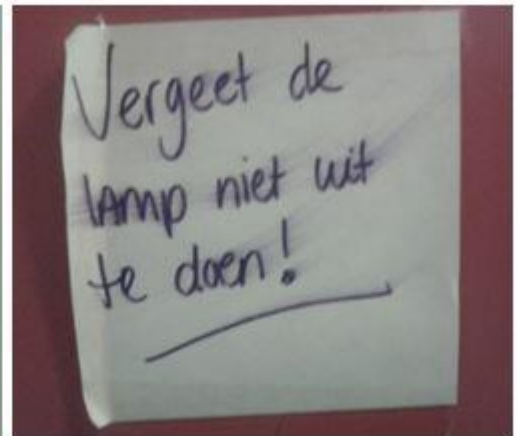 Vergeet de
lamp niet uit
te doen!